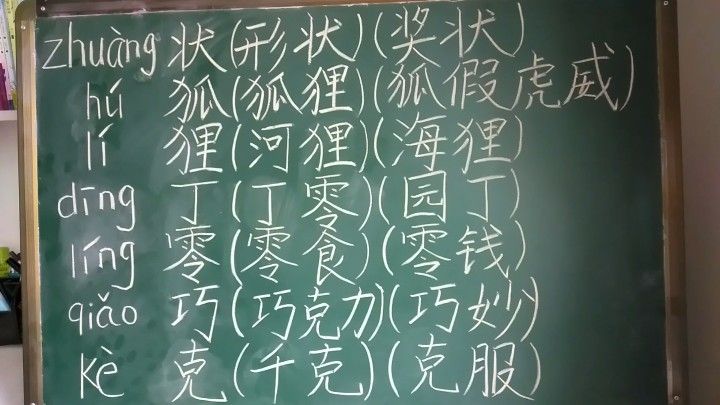 zhuàng 状(形状)(奖状)
hú 狐(狐狸)(狐假虎威)
lí 狸(河狸)(海狸)
dīng 丁(丁零)(园丁)
líng 零(零食)(零钱)
qiǎo 巧(巧克力)(巧妙)
kè 克(千克)(克服)